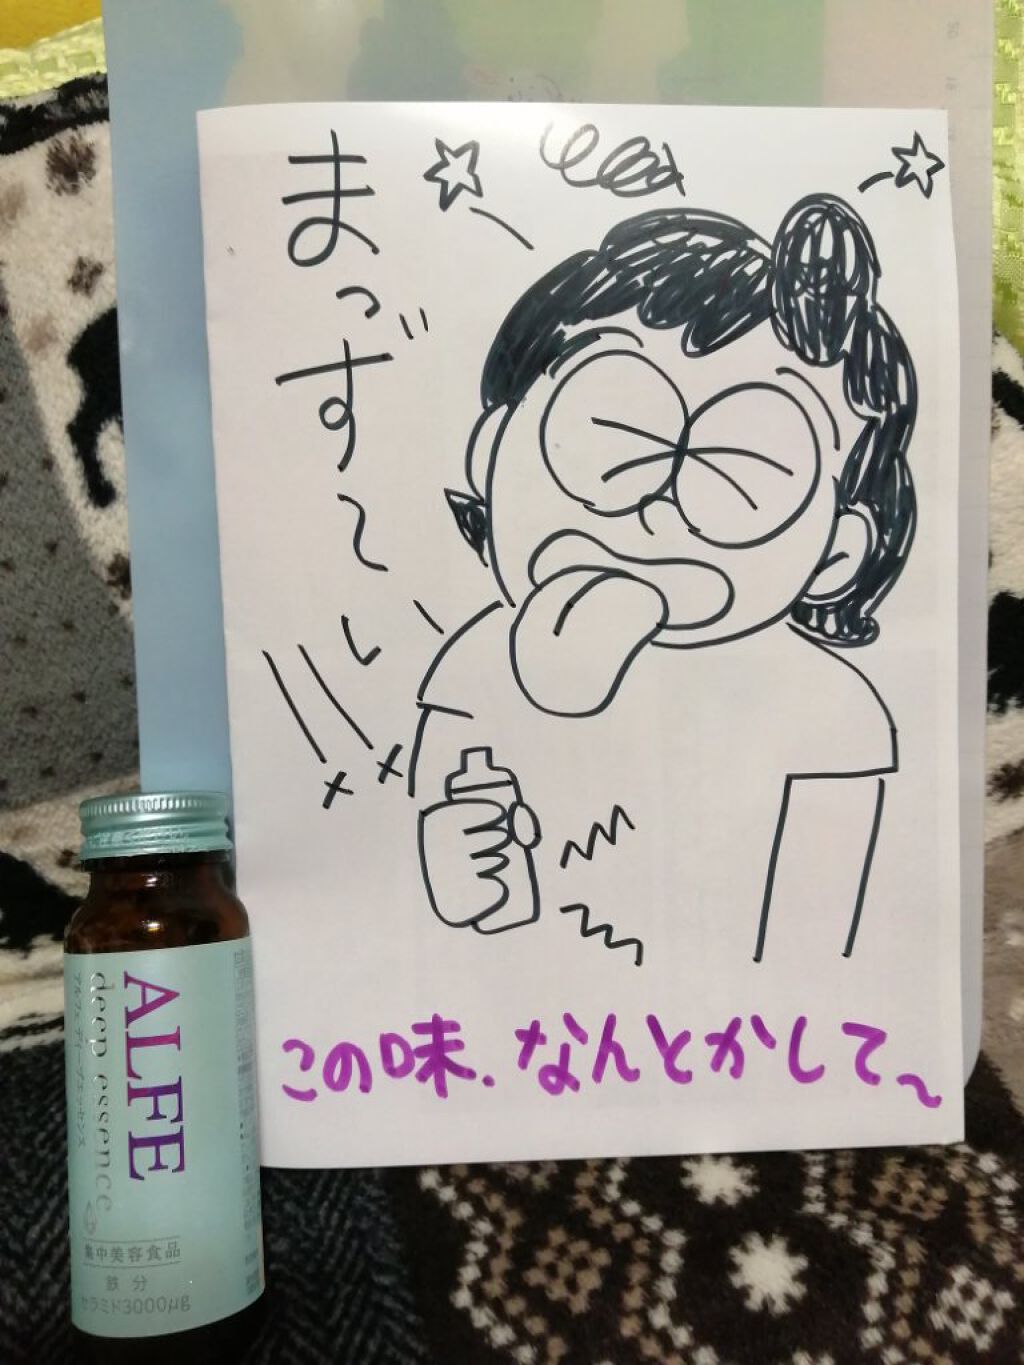 まっず〜い
この味.なんとかして〜
ALFE
deep essence
アルフェ ディープエッセンス
集中美容食品
鉄分
セラミド3000μg